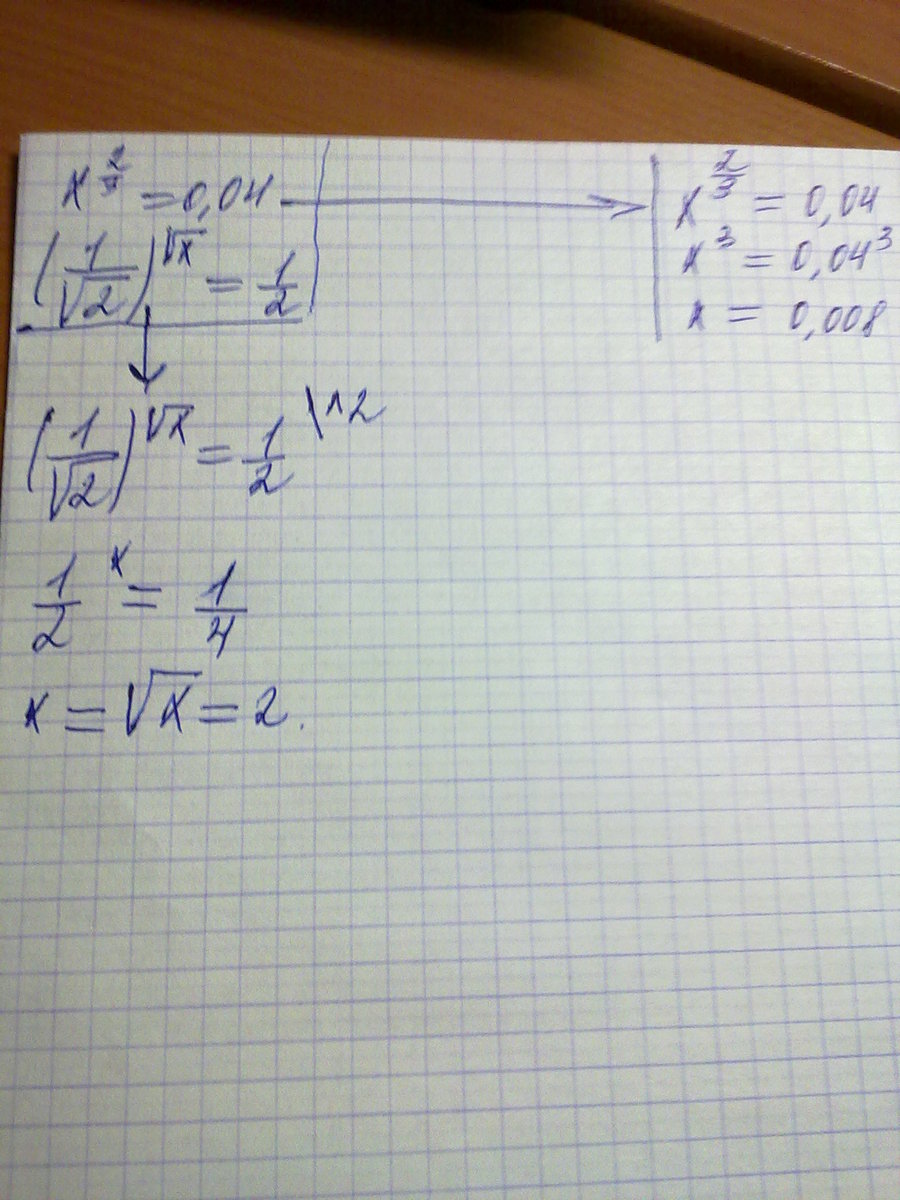 x^{2/3} = 0,04
(1/√2)^{√x} = 1/2
x^{2/3} = 0,04
x^3 = 0,04^3
x = 0,008
(1/√2)^{√x} = 1/2 \^2
1/2^x = 1/4
x = √x = 2.